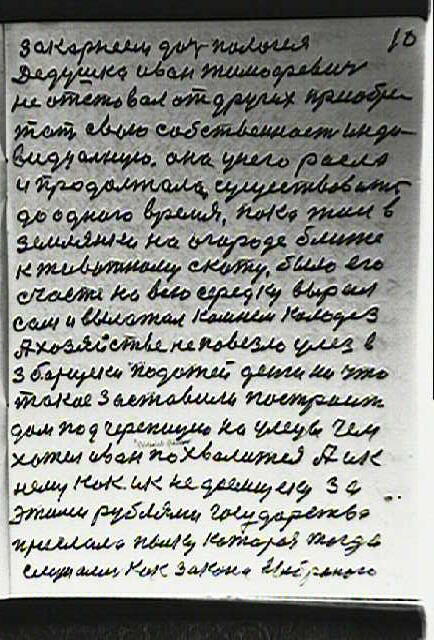 10
закарнеем дот пологея
Дедушка иван тимофревич
не отстовал от других приобре
тат свою собственност инди
видуалную, она унего расла
и продолжала, существовать
до одного время, пока жил в
землянки на огороде ближе
к животному скоту, было его
счасте на всю середку вырыл
сам и выложил камнем колодез
А хозяйстве неповезло улез в
зборщики подотей денги ни что
такое Заставили построит
дом под черепицию на улецы чем
хотел иван похвалится А ик
нему как ик недоимщику За
этими рублями государства
прислала пику которая тогда
слушали как закона